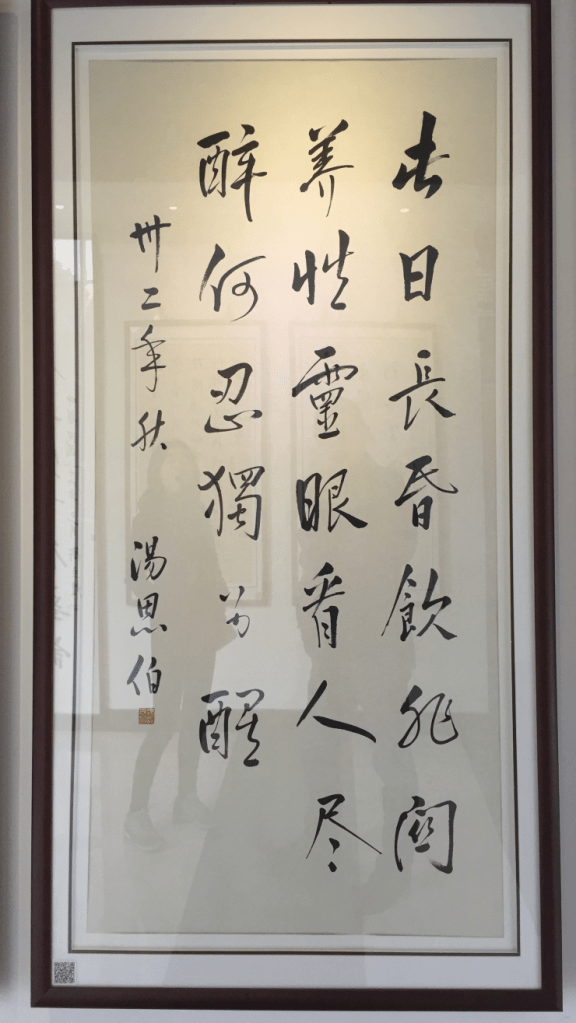 此日長昏飲非關
养性靈眼看人尽
醉何忍獨為醒
卅二年秋 湯恩伯